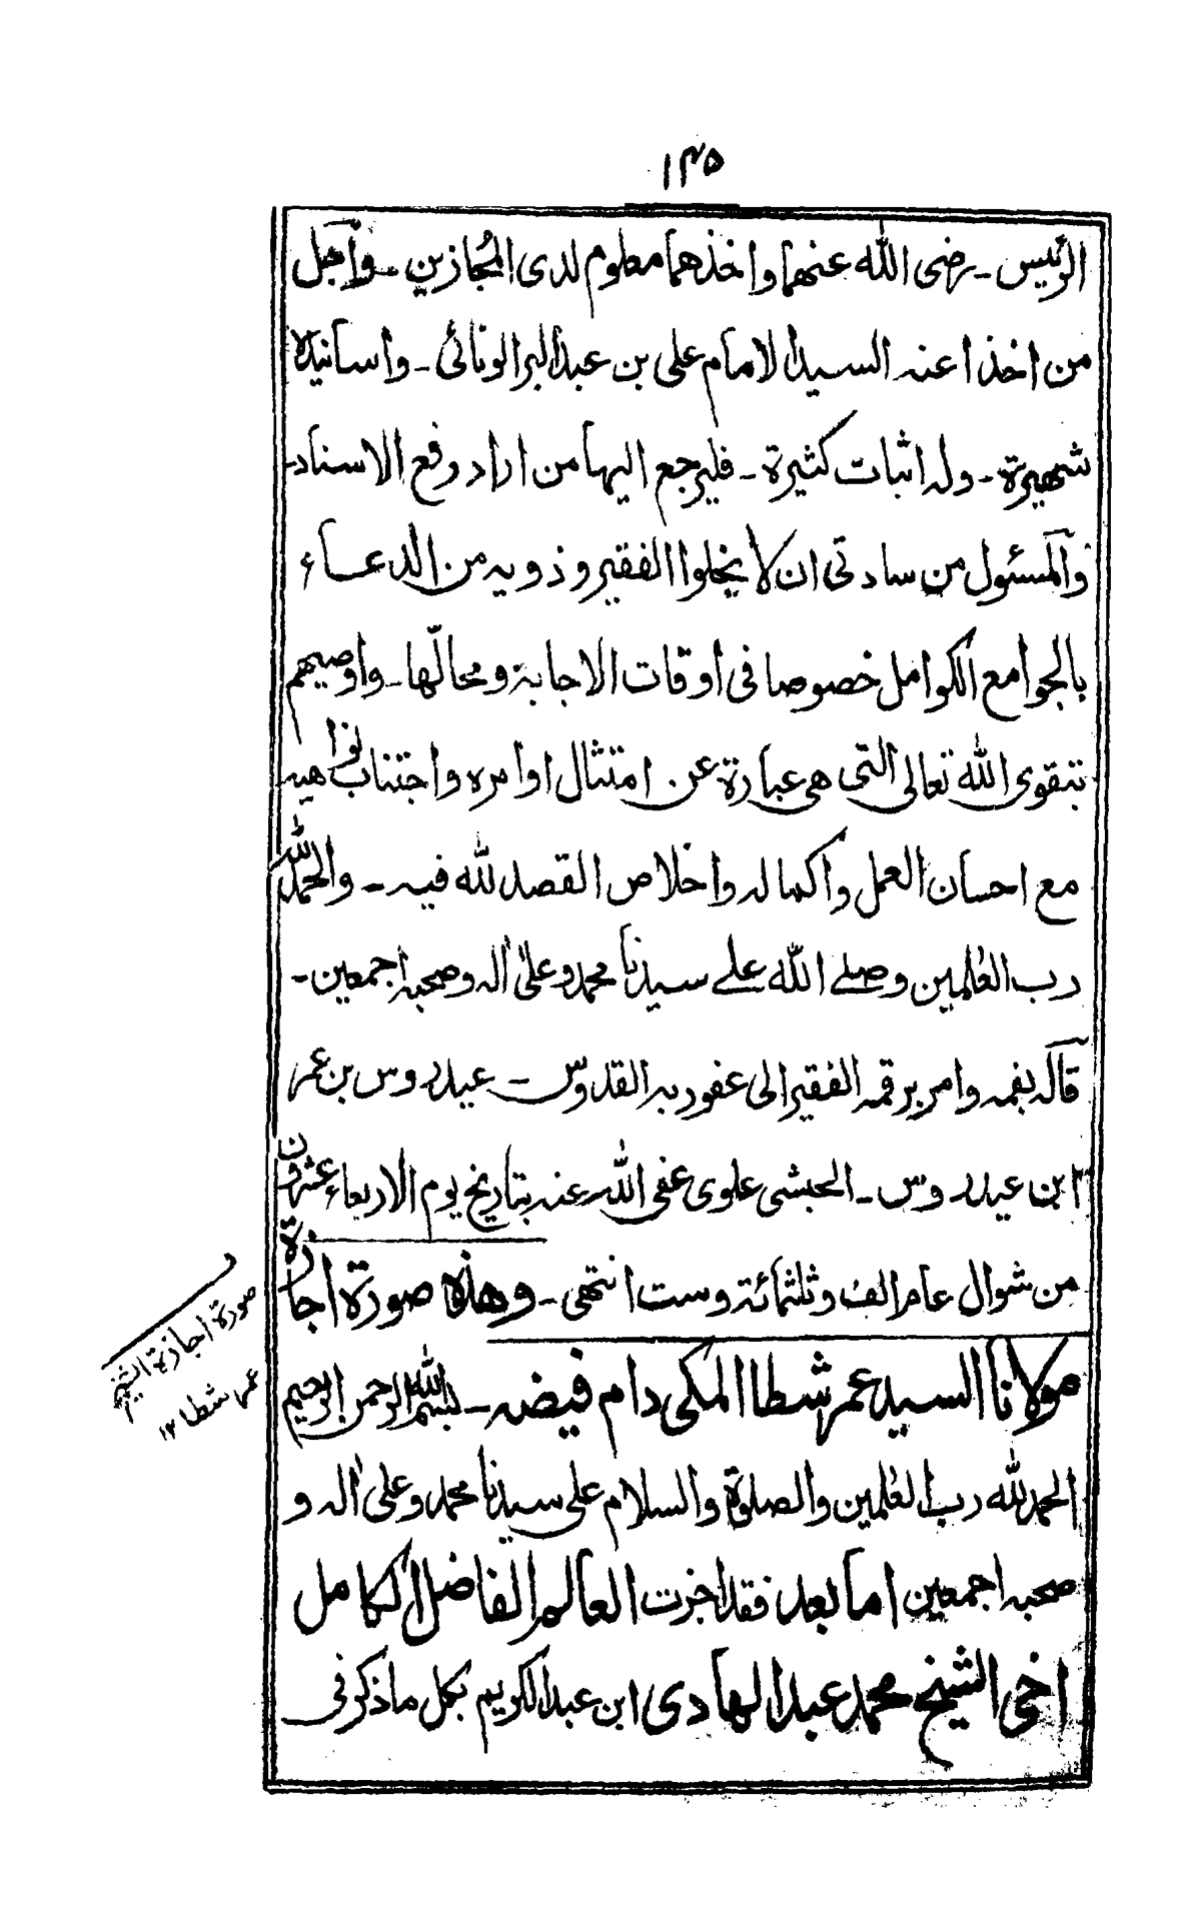 ١٣٥
الرئيس ـ رضى الله عنهما واخذهما معلوم لدى المُجازين ـ وآجل
من اخذا عنه السيد الامام على بن عبد البر الونائى ـ واسانيده
شهيرة ـ وله اثبات كثيرة ـ فليرجع اليها من اراد رفع الاسناد
وآلمسئول من سادتى ان لا يخلوا الفقير وذويه من الدعاء
بالجوامع الكوامل خصوصا فى اوقات الاجابة ومحالّها ـ واوصيهم
بتقوى الله تعالى التى هى عبارة عن امتثال اوامره واجتناب نواهيه
مع احسان العمل واكماله واخلاص القصد لله فيه ـ والحمد لله
رب العٰلمين وصلے الله علے سيدنا محمد وعلىٰ اٰله وصحبه اجمعين ـ
قاله بفمه وامر برقمه الفقير الى عفو ربه القدوس ـ عيدروس بن عمر
ابن عيدروس ـ الحبشى علوى عفى الله عنه بتاريخ يوم الاربعاء عشرون
من شوال عام الف وثلثمائة وست انتهى ـ وهٰذه صورة اجازة
مولانا السيد عمر شطا المكى دام فيضه ـ بسم الله الرحمن الرحيم
الحمد لله رب العٰلمين والصلوة والسلام على سيدنا محمد وعلى اٰله و
صحبه اجمعين اما بعد فقد اجزت العالم الفاضل الكامل
اخى الشيخ محمد عبد الهادى ابن عبد الكريم بكل ما ذكر فى
صورة اجازة الشيخ
عمر شطا ١٢